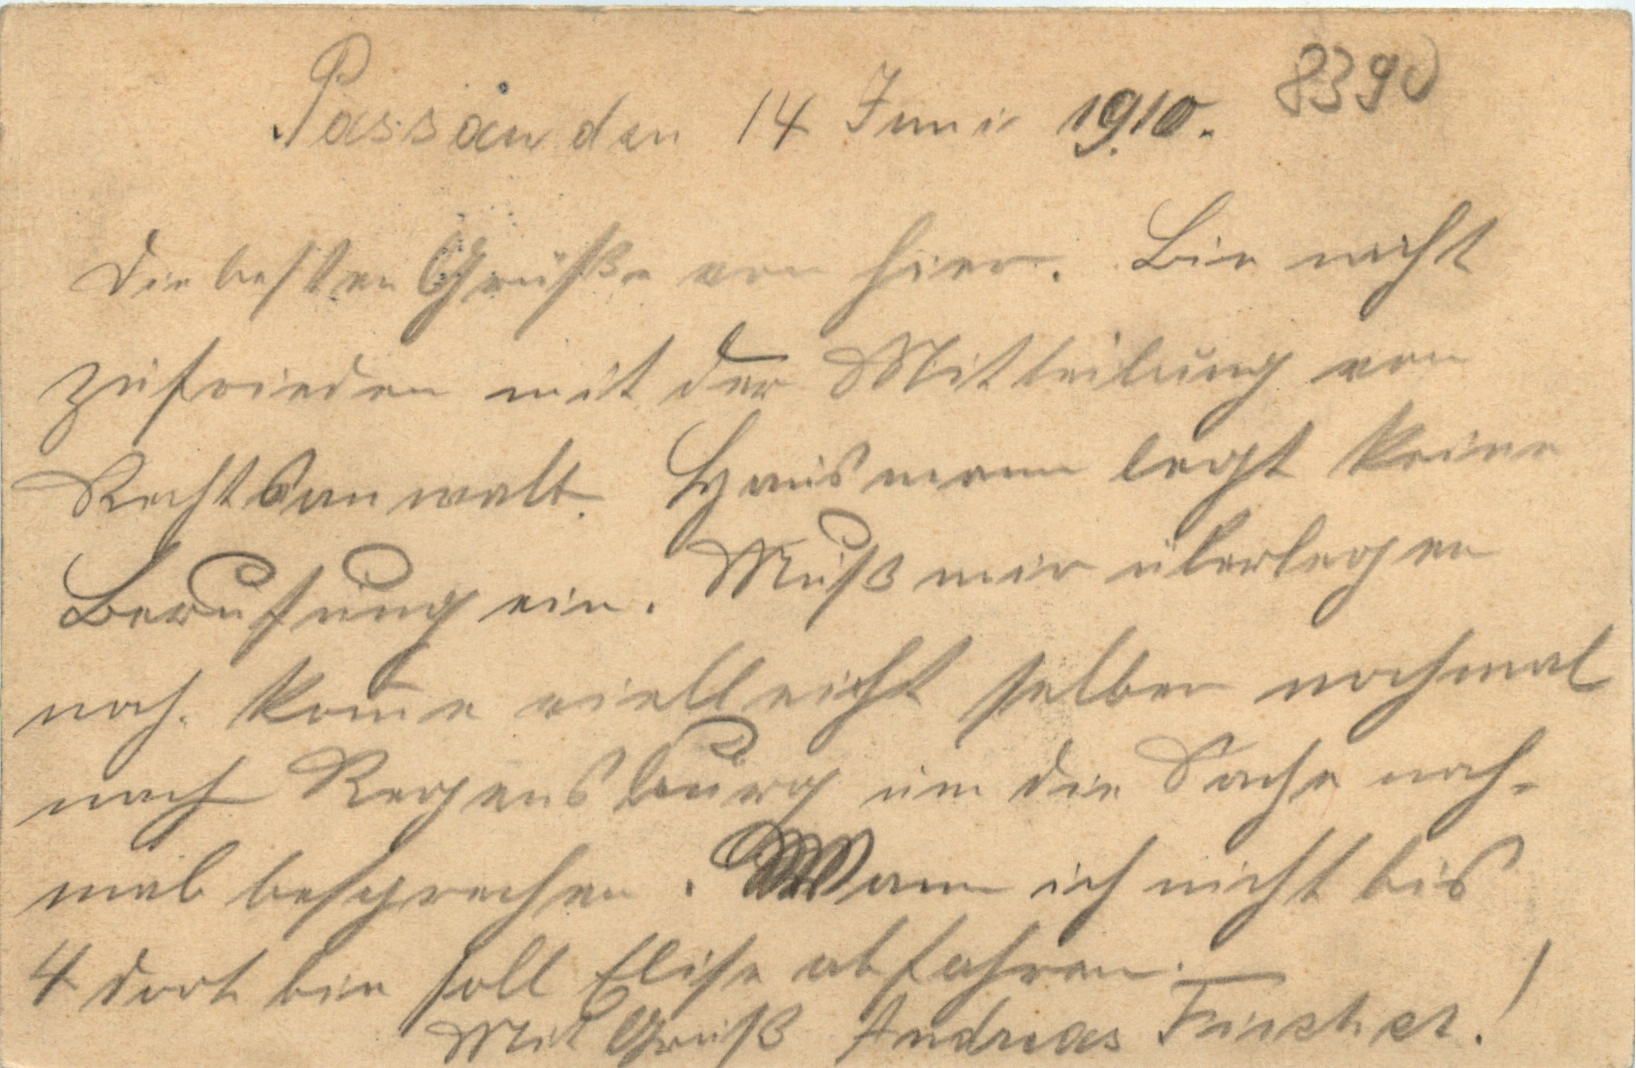 Passau den 14 Juni 1910. 8390
Die besten Grüße von hier. Bin nicht
zufrieden mit der Mitteilung von
Rechtsanwalt. Hausmann legt keine
Berufung ein. Muß mir überlegen
noch. Kom̄e vielleicht selber nochmal
nach Regensburg um die Sache noch-
mal besprechen. Wann ich nicht bis
4 dort bin soll Elise abfahren.
Mit Gruß Andreas !